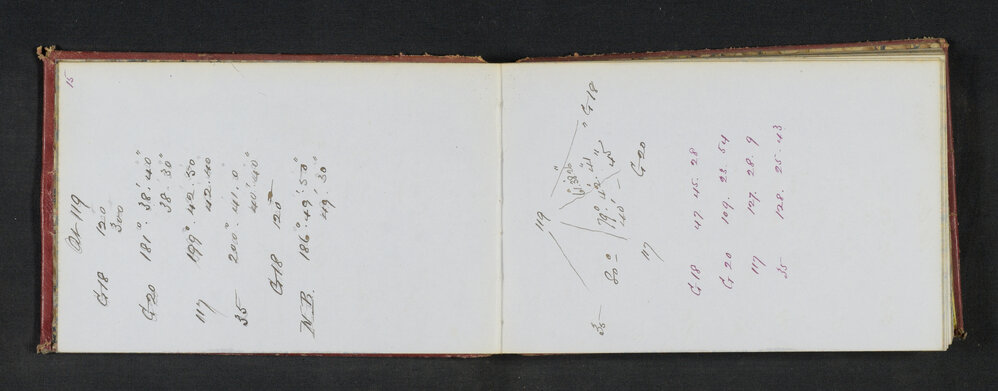 15
At 119
G18 120
300
G20 181° 38' 40"
38' 30"
117 199° 42' 50
42' 40
35 200° 41' 0"
40' 40"
G18 120
N.B. 186° 49' 50"
49' 30"
119
G18
G20
80°
117
35
G18 47 45 28
G20 109. 23. 54
117 127. 28. 9
35 128. 25. 43